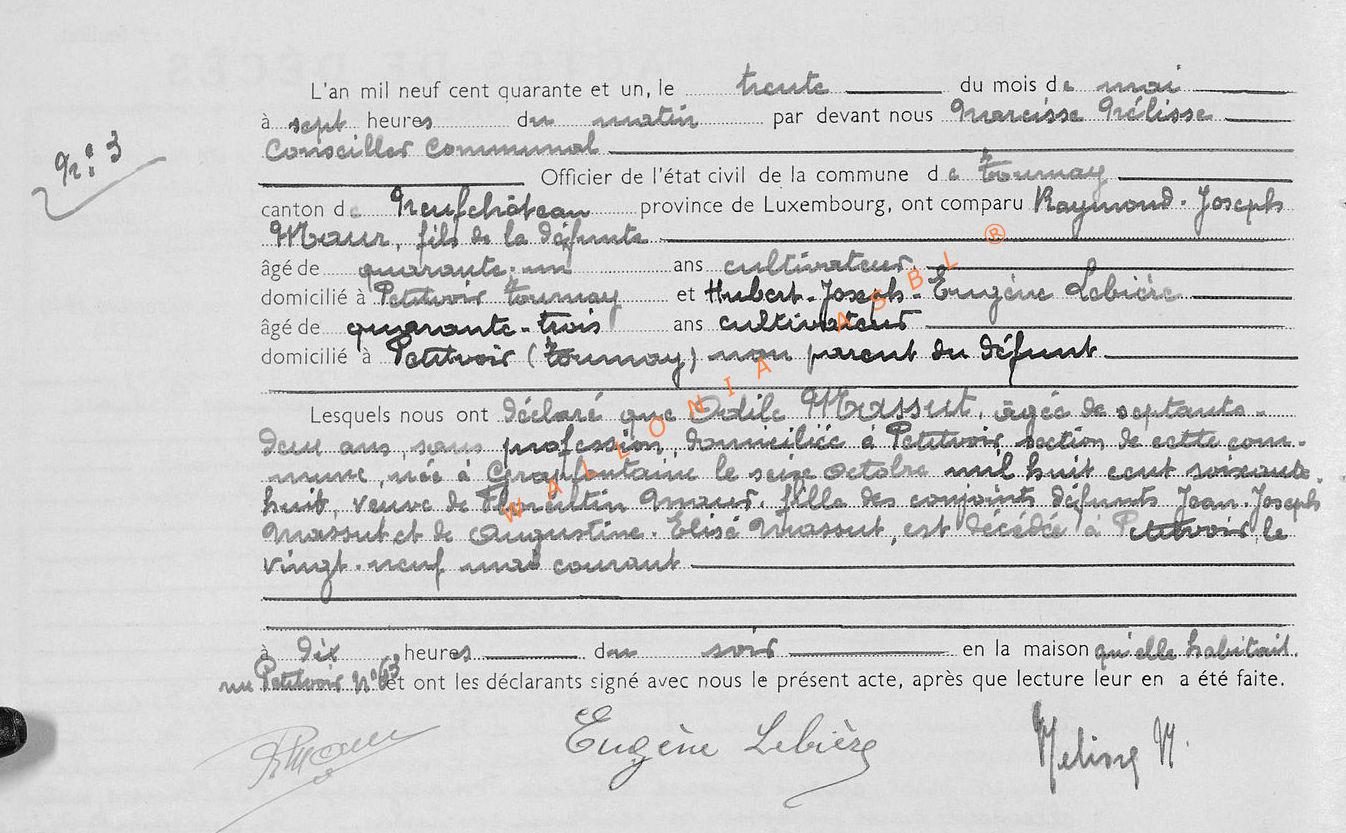 L'an mil neuf cent quarante et un, le trente du mois de mai
à sept heures du matin par devant nous Narcisse Mélisse
Conseiller Communal
Officier de l'état civil de la commune de Tournay
N°: 3
canton de Neufchâteau province de Luxembourg, ont comparu Raymond-Joseph
Maur, fils de la défunte
âgé de quarante-un ans cultivateur
domicilié à Petitvoir Tournay et Hubert-Joseph-Eugène Lebière
âgé de quarante-trois ans cultivateur
domicilié à Petitvoir (Tournay) non parent du défunt
Lesquels nous ont déclaré que Odile Massut, âgée de septante-
deux ans, sans profession, domiciliée à Petitvoir, section de cette com-
mune, née à Grapfontaine le seize octobre mil huit cent soixante-
huit, veuve de Maur, fille des conjoints défunts Jean-Joseph
Massut et de Augustine-Elise Massut, est décédée à Petitvoir, le
vingt-neuf mai courant
à dix heures du soir en la maison qu'elle habitait.
Petitvoir n° 63 et ont les déclarants signé avec nous le présent acte, après que lecture leur en a été faite.
RMaur Eugène Lebière Melisse N.
WALLONIA ASBL ®